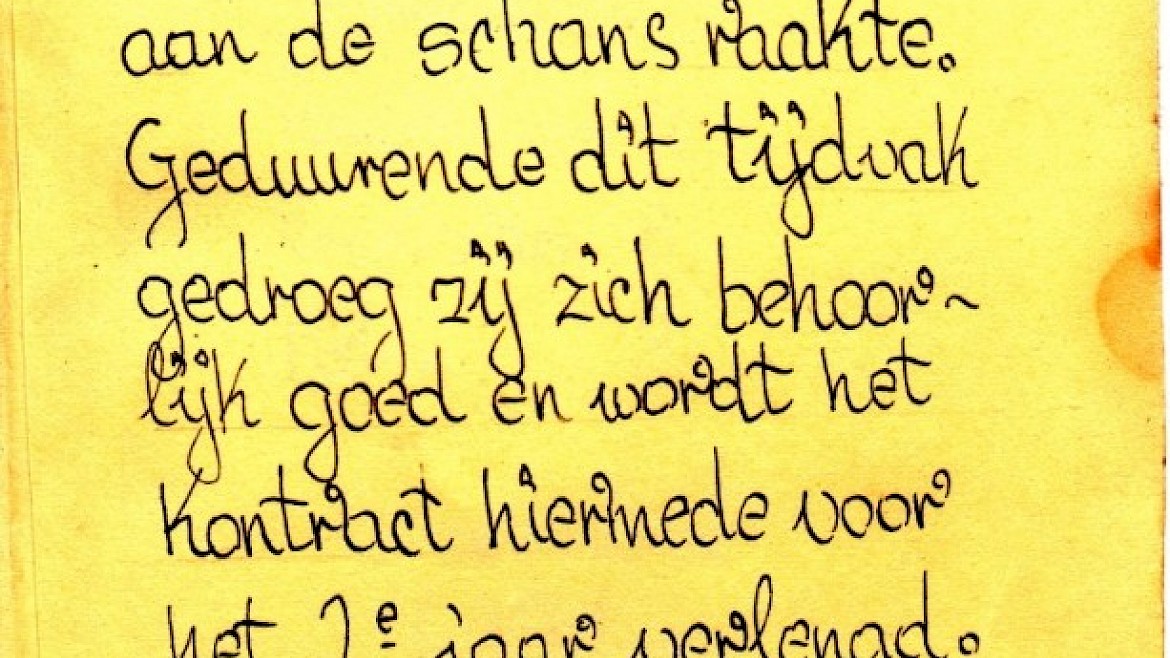 aan de schans raakte.
Geduurende dit tijdvak
gedroeg zij zich behoor~
lijk goed en wordt het
kontract hiermede voor
het 2e jaar verlengd.